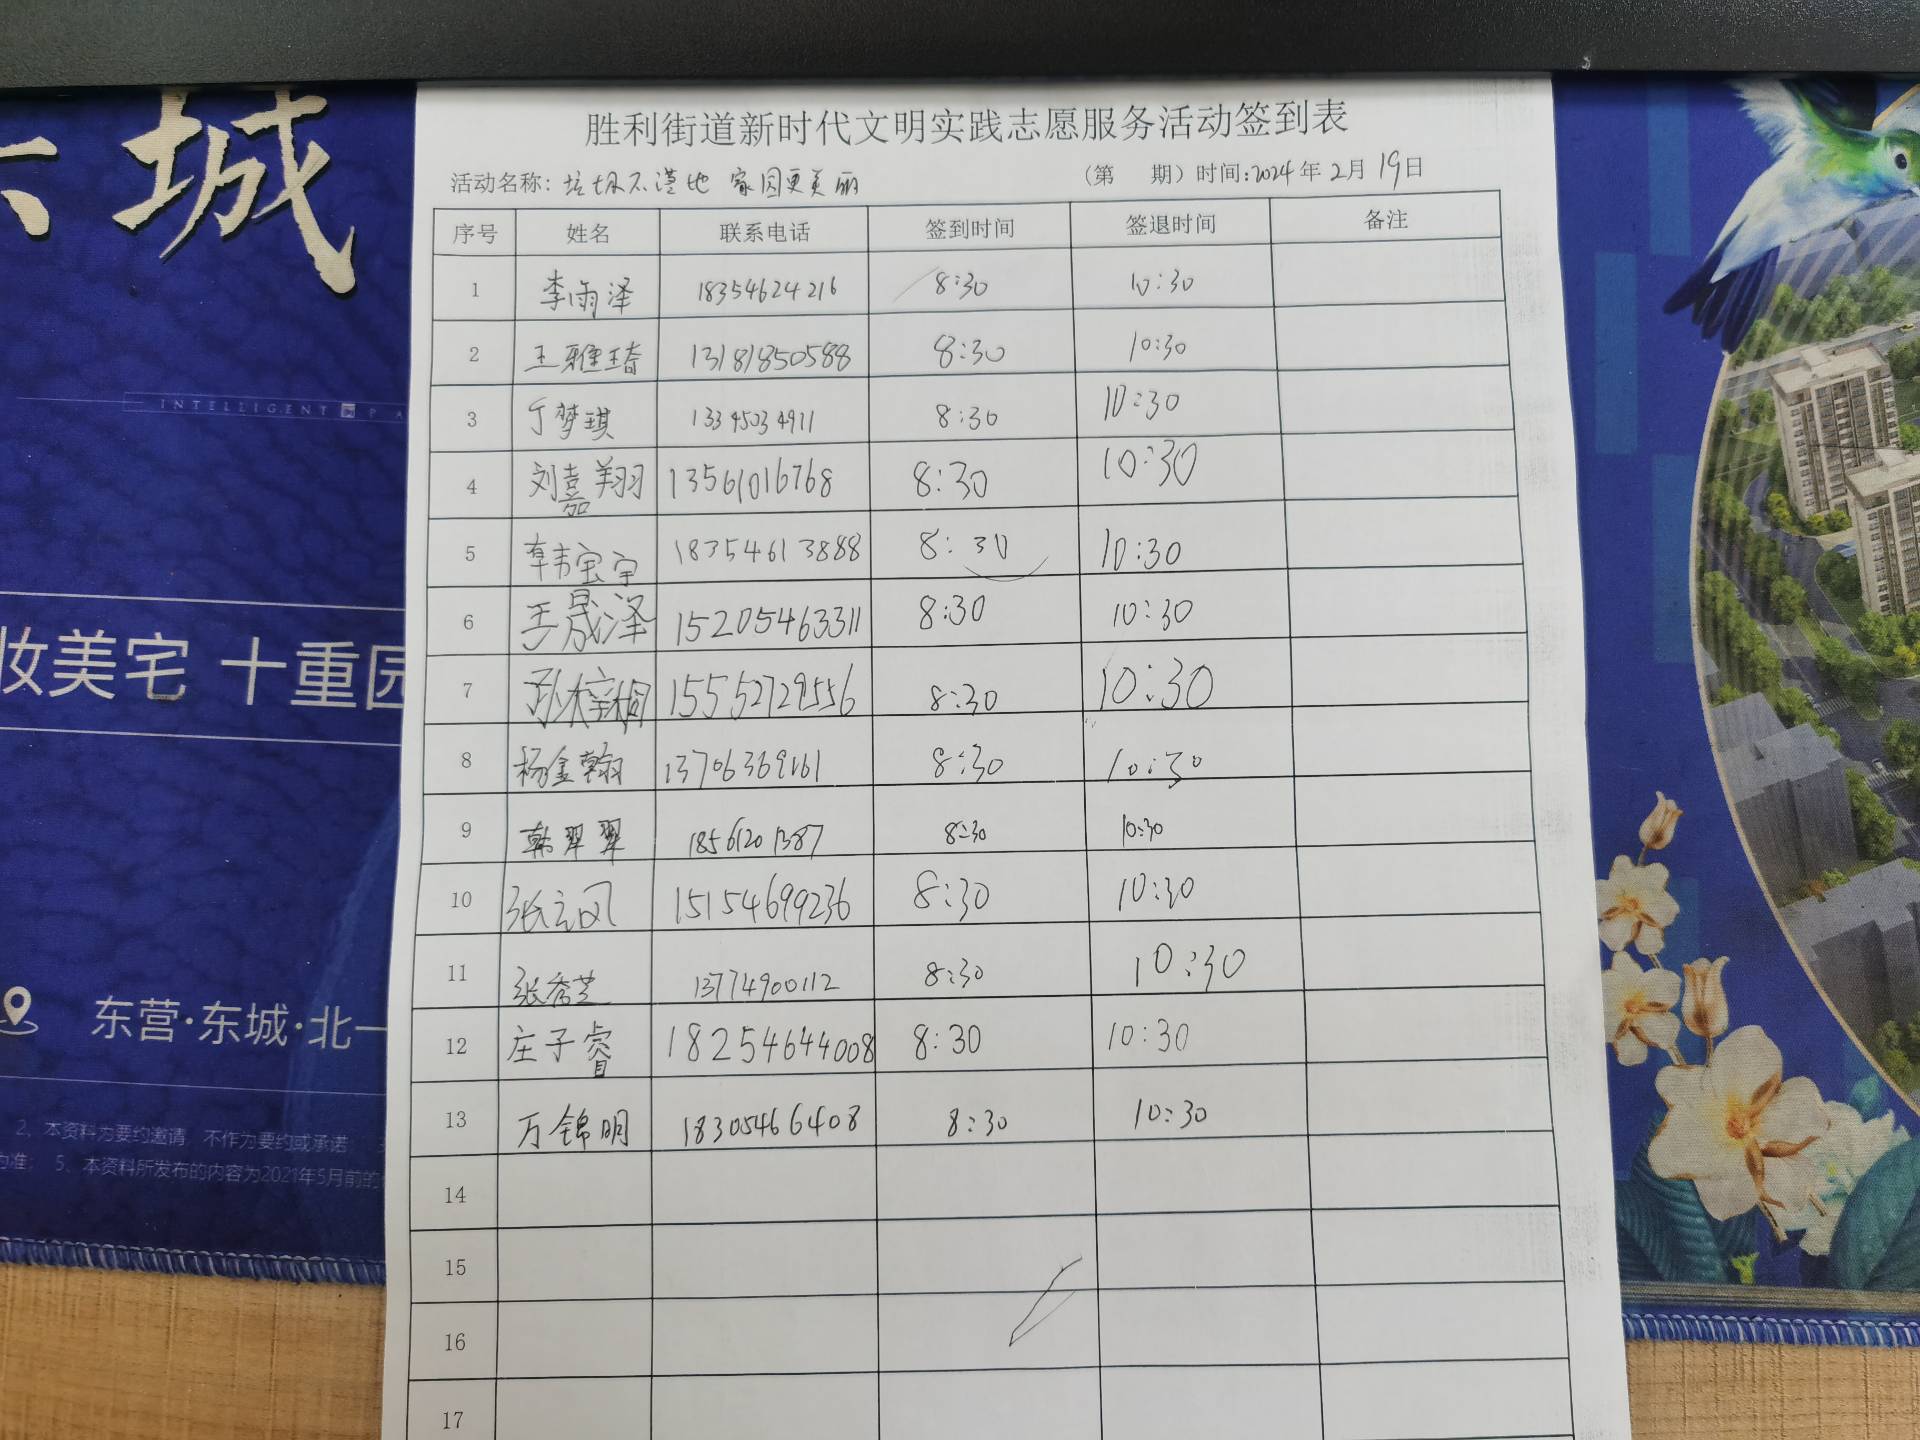 城
INTELLIGENT PA
妆美宅 十重园
东营·东城·北一
2、本资料为要约邀请,不作为要约或承诺;
为准; 5、本资料所发布的内容为2021年5月前的
胜利街道新时代文明实践志愿服务活动签到表
活动名称:垃圾不落地 家园更美丽 (第 期)时间:2024年2月19日
序号 姓名 联系电话 签到时间 签退时间 备注
1 李雨泽 18354624216 8:30 10:30
2 王雅琦 13181850588 8:30 10:30
3 丁梦琪 13345034911 8:30 10:30
4 刘嘉翔 13561016768 8:30 10:30
5 韩宝宇 18354613888 8:30 10:30
6 王晟泽 15205463311 8:30 10:30
7 孙梓桐 15552729556 8:30 10:30
8 杨金翰 13706369161 8:30 10:30
9 韩翠翠 18561201387 8:30 10:30
10 张立风 15154699236 8:30 10:30
11 张秀芝 13774900112 8:30 10:30
12 庄子睿 18254644008 8:30 10:30
13 万锦明 18305466408 8:30 10:30
14
15
16
17